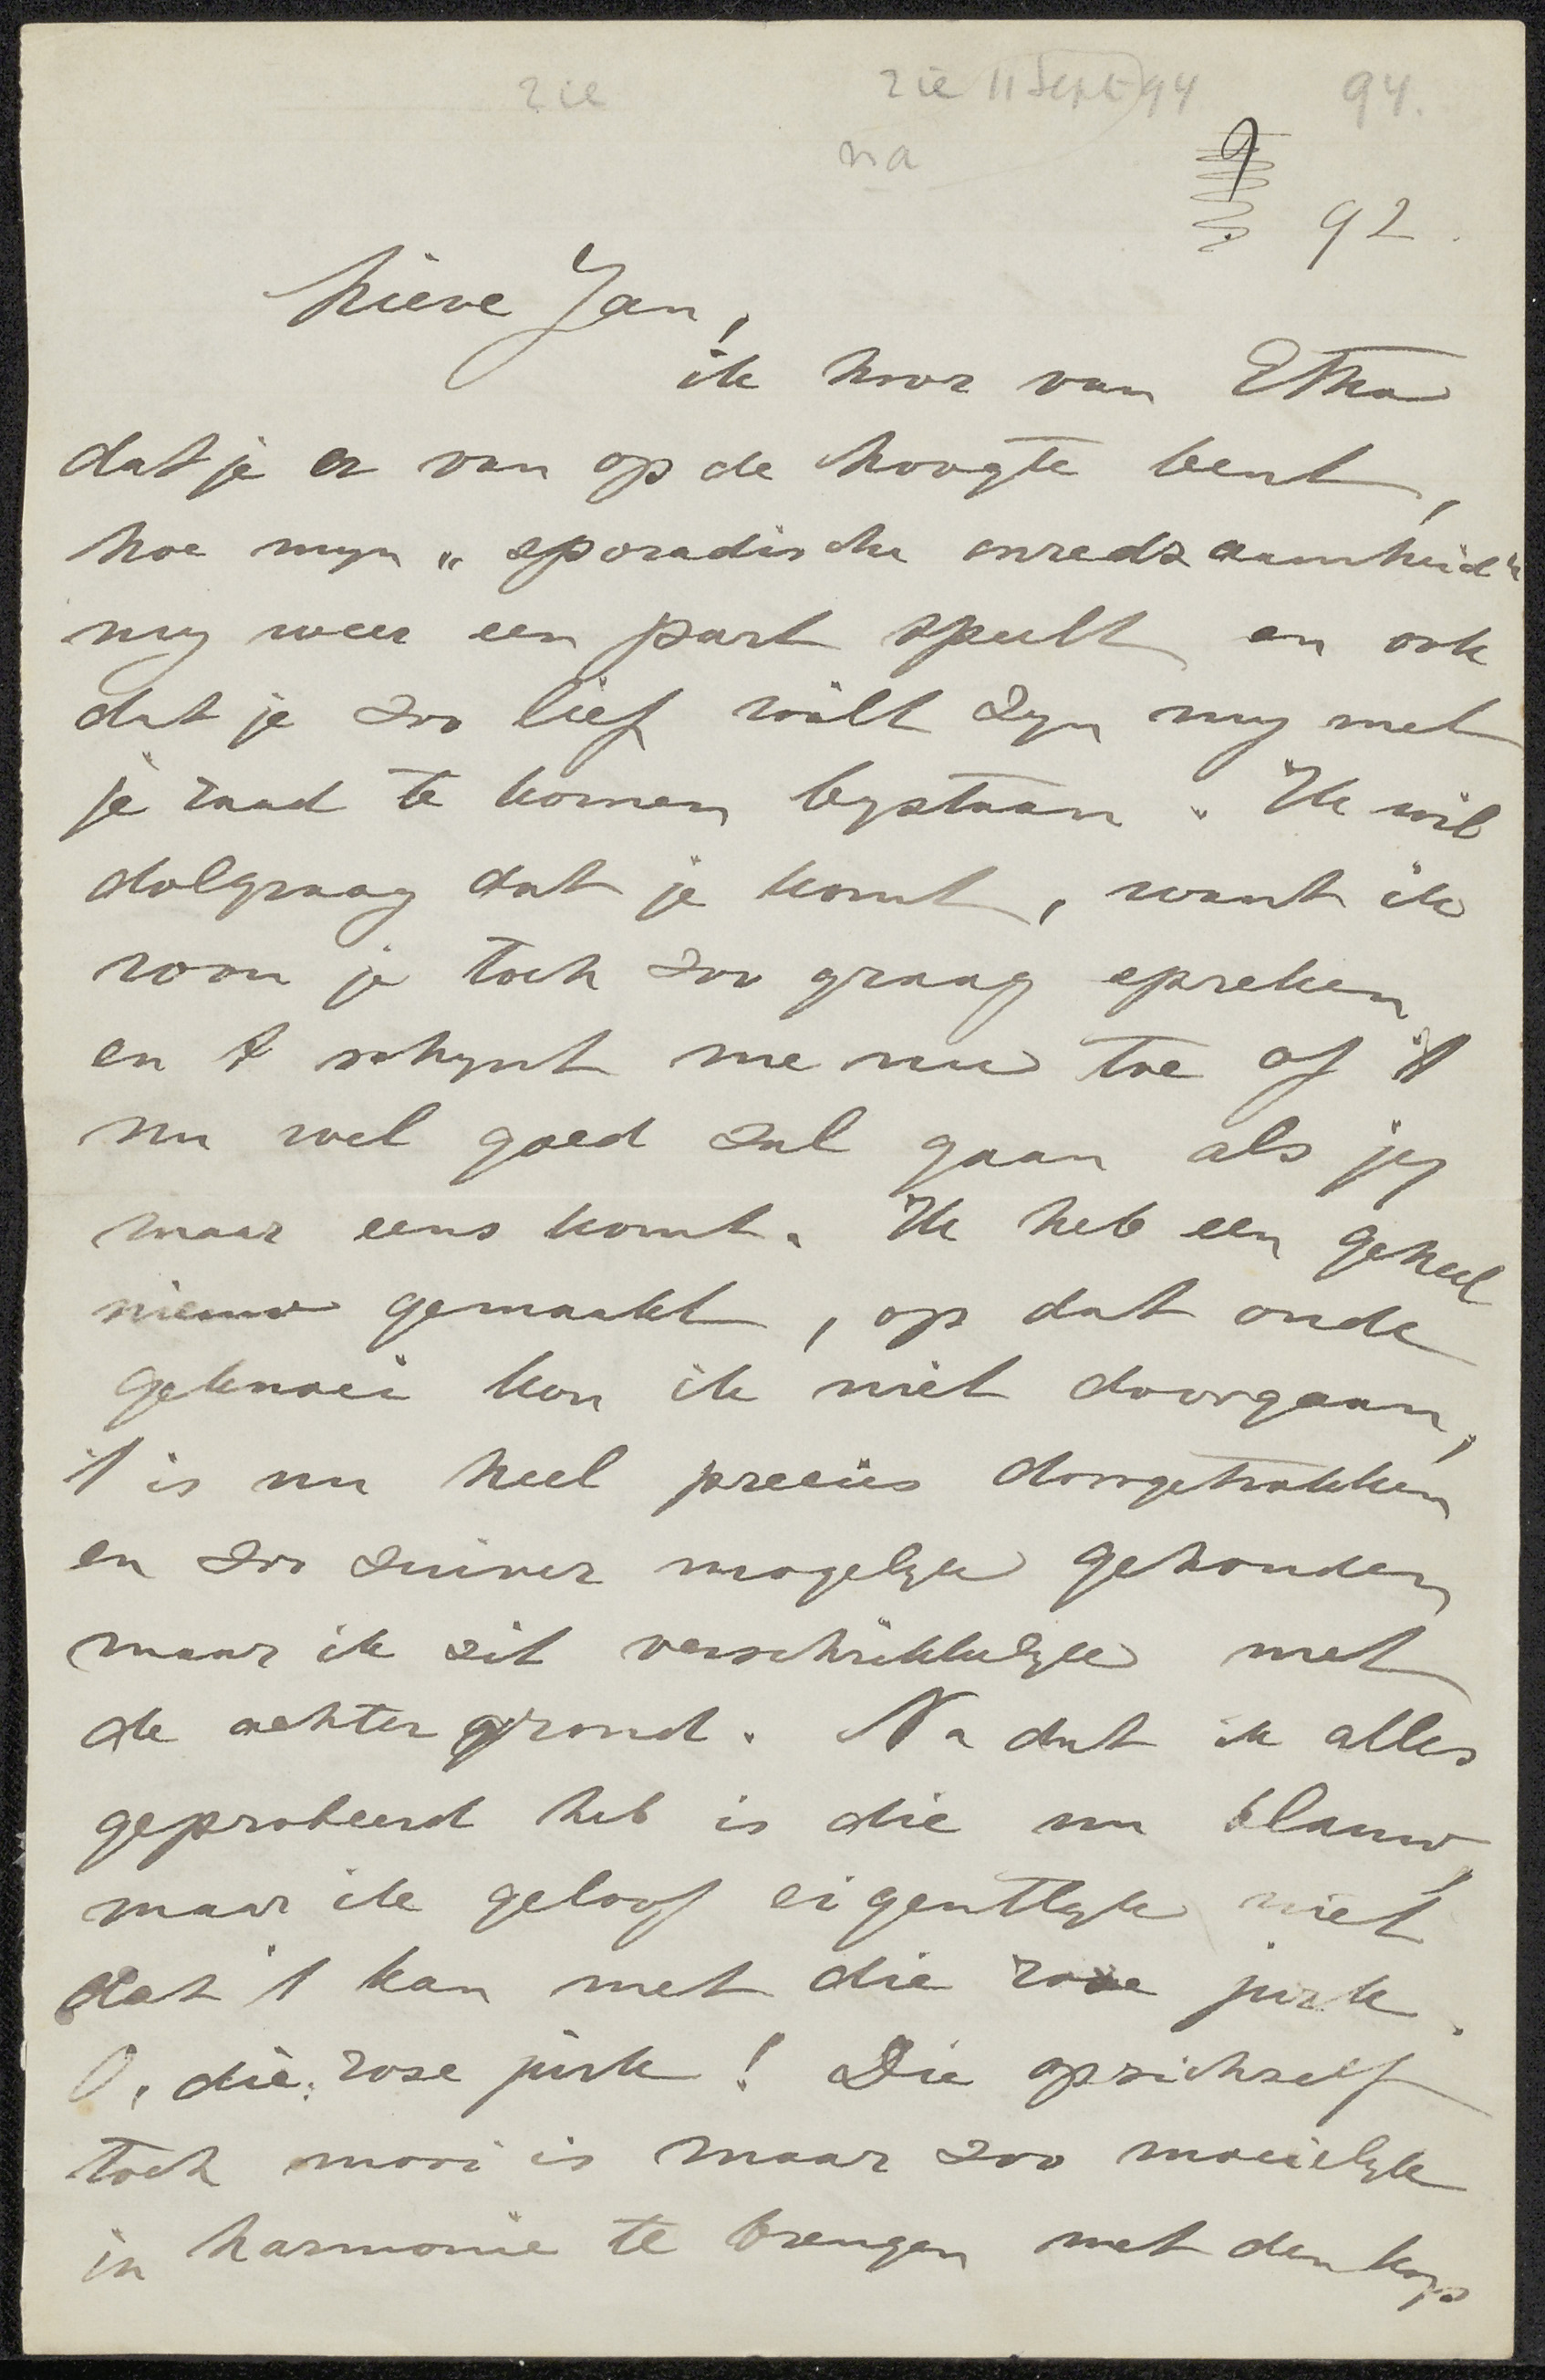 zie zie 11 Sept 94 94.
na
92.
Lieve Jan,
ik hoor van Etha
dat je er van op de hoogte bent,
hoe myn „sporadische onredzaamheid"
my weer een part speelt en ook
dat je zoo lief wilt zyn my met
je raad te komen bystaan. Ik wil
dolgraag dat je komt, want ik
wou je toch zoo graag spreken
en 't schynt me nu toe of 't
nu wel goed zal gaan als jy
maar eens komt. Ik heb een geheel
nieuw gemaakt, op dat oude
geknoei kon ik niet doorgaan,
't is nu heel precies doorgetrokken
en zoo zuiver mogelyk gehouden
maar ik zit verschrikkelyk met
de achtergrond. Na dat ik alles
geprobeerd heb is die nu blauw,
maar ik geloof eigentlyk niet
dat 't kan met die rose jurk.
O, die rose jurk! Die opzichzelf
toch mooi is maar zoo moeielyk
in harmonie te brengen met den kop